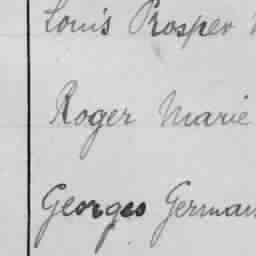 Louis Prosper
Roger Marie
Georges German